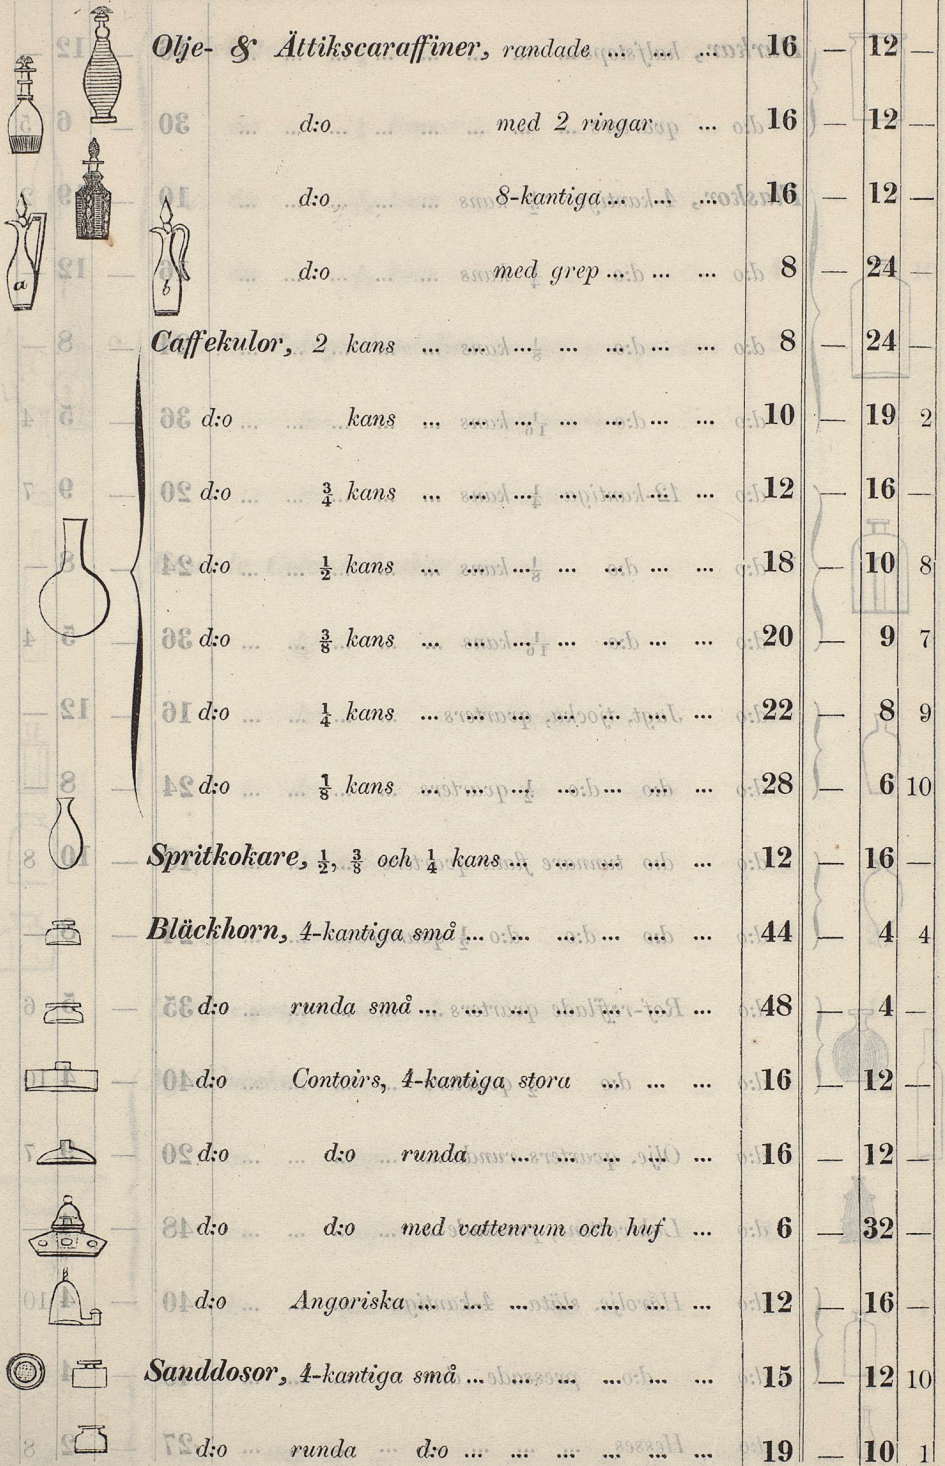 Olje- & Ättikscaraffiner, randade ... ... ... 16 — 12 —
d:o med 2 ringar ... 16 — 12 —
d:o 8-kantiga ... ... ... 16 — 12 —
a b d:o med grep ... ... ... 8 — 24 —
Caffekulor, 2 kans ... ... ... ... ... ... ... 8 — 24 —
d:o kans ... ... ... ... ... ... ... 10 — 19 2
d:o 3/4 kans ... ... ... ... ... ... ... 12 — 16 —
d:o 1/2 kans ... ... ... ... ... ... ... 18 — 10 8
d:o 3/8 kans ... ... ... ... ... ... ... 20 — 9 7
d:o 1/4 kans ... ... ... ... ... ... ... 22 — 8 9
d:o 1/8 kans ... ... ... ... ... ... ... 28 — 6 10
Spritkokare, 1/2, 3/8 och 1/4 kans ... ... ... ... ... 12 — 16 —
Bläckhorn, 4-kantiga små ... ... ... ... ... ... 44 — 4 4
d:o runda små ... ... ... ... ... ... ... 48 — 4 —
d:o Contoirs, 4-kantiga stora ... ... ... 16 — 12 —
d:o d:o runda ... ... ... ... ... 16 — 12 —
d:o d:o med vattenrum och huf ... 6 — 32 —
d:o Angoriska ... ... ... ... ... ... ... 12 — 16 —
Sanddosor, 4-kantiga små ... ... ... ... ... ... 15 — 12 10
d:o runda d:o ... ... ... ... ... ... 19 — 10 1